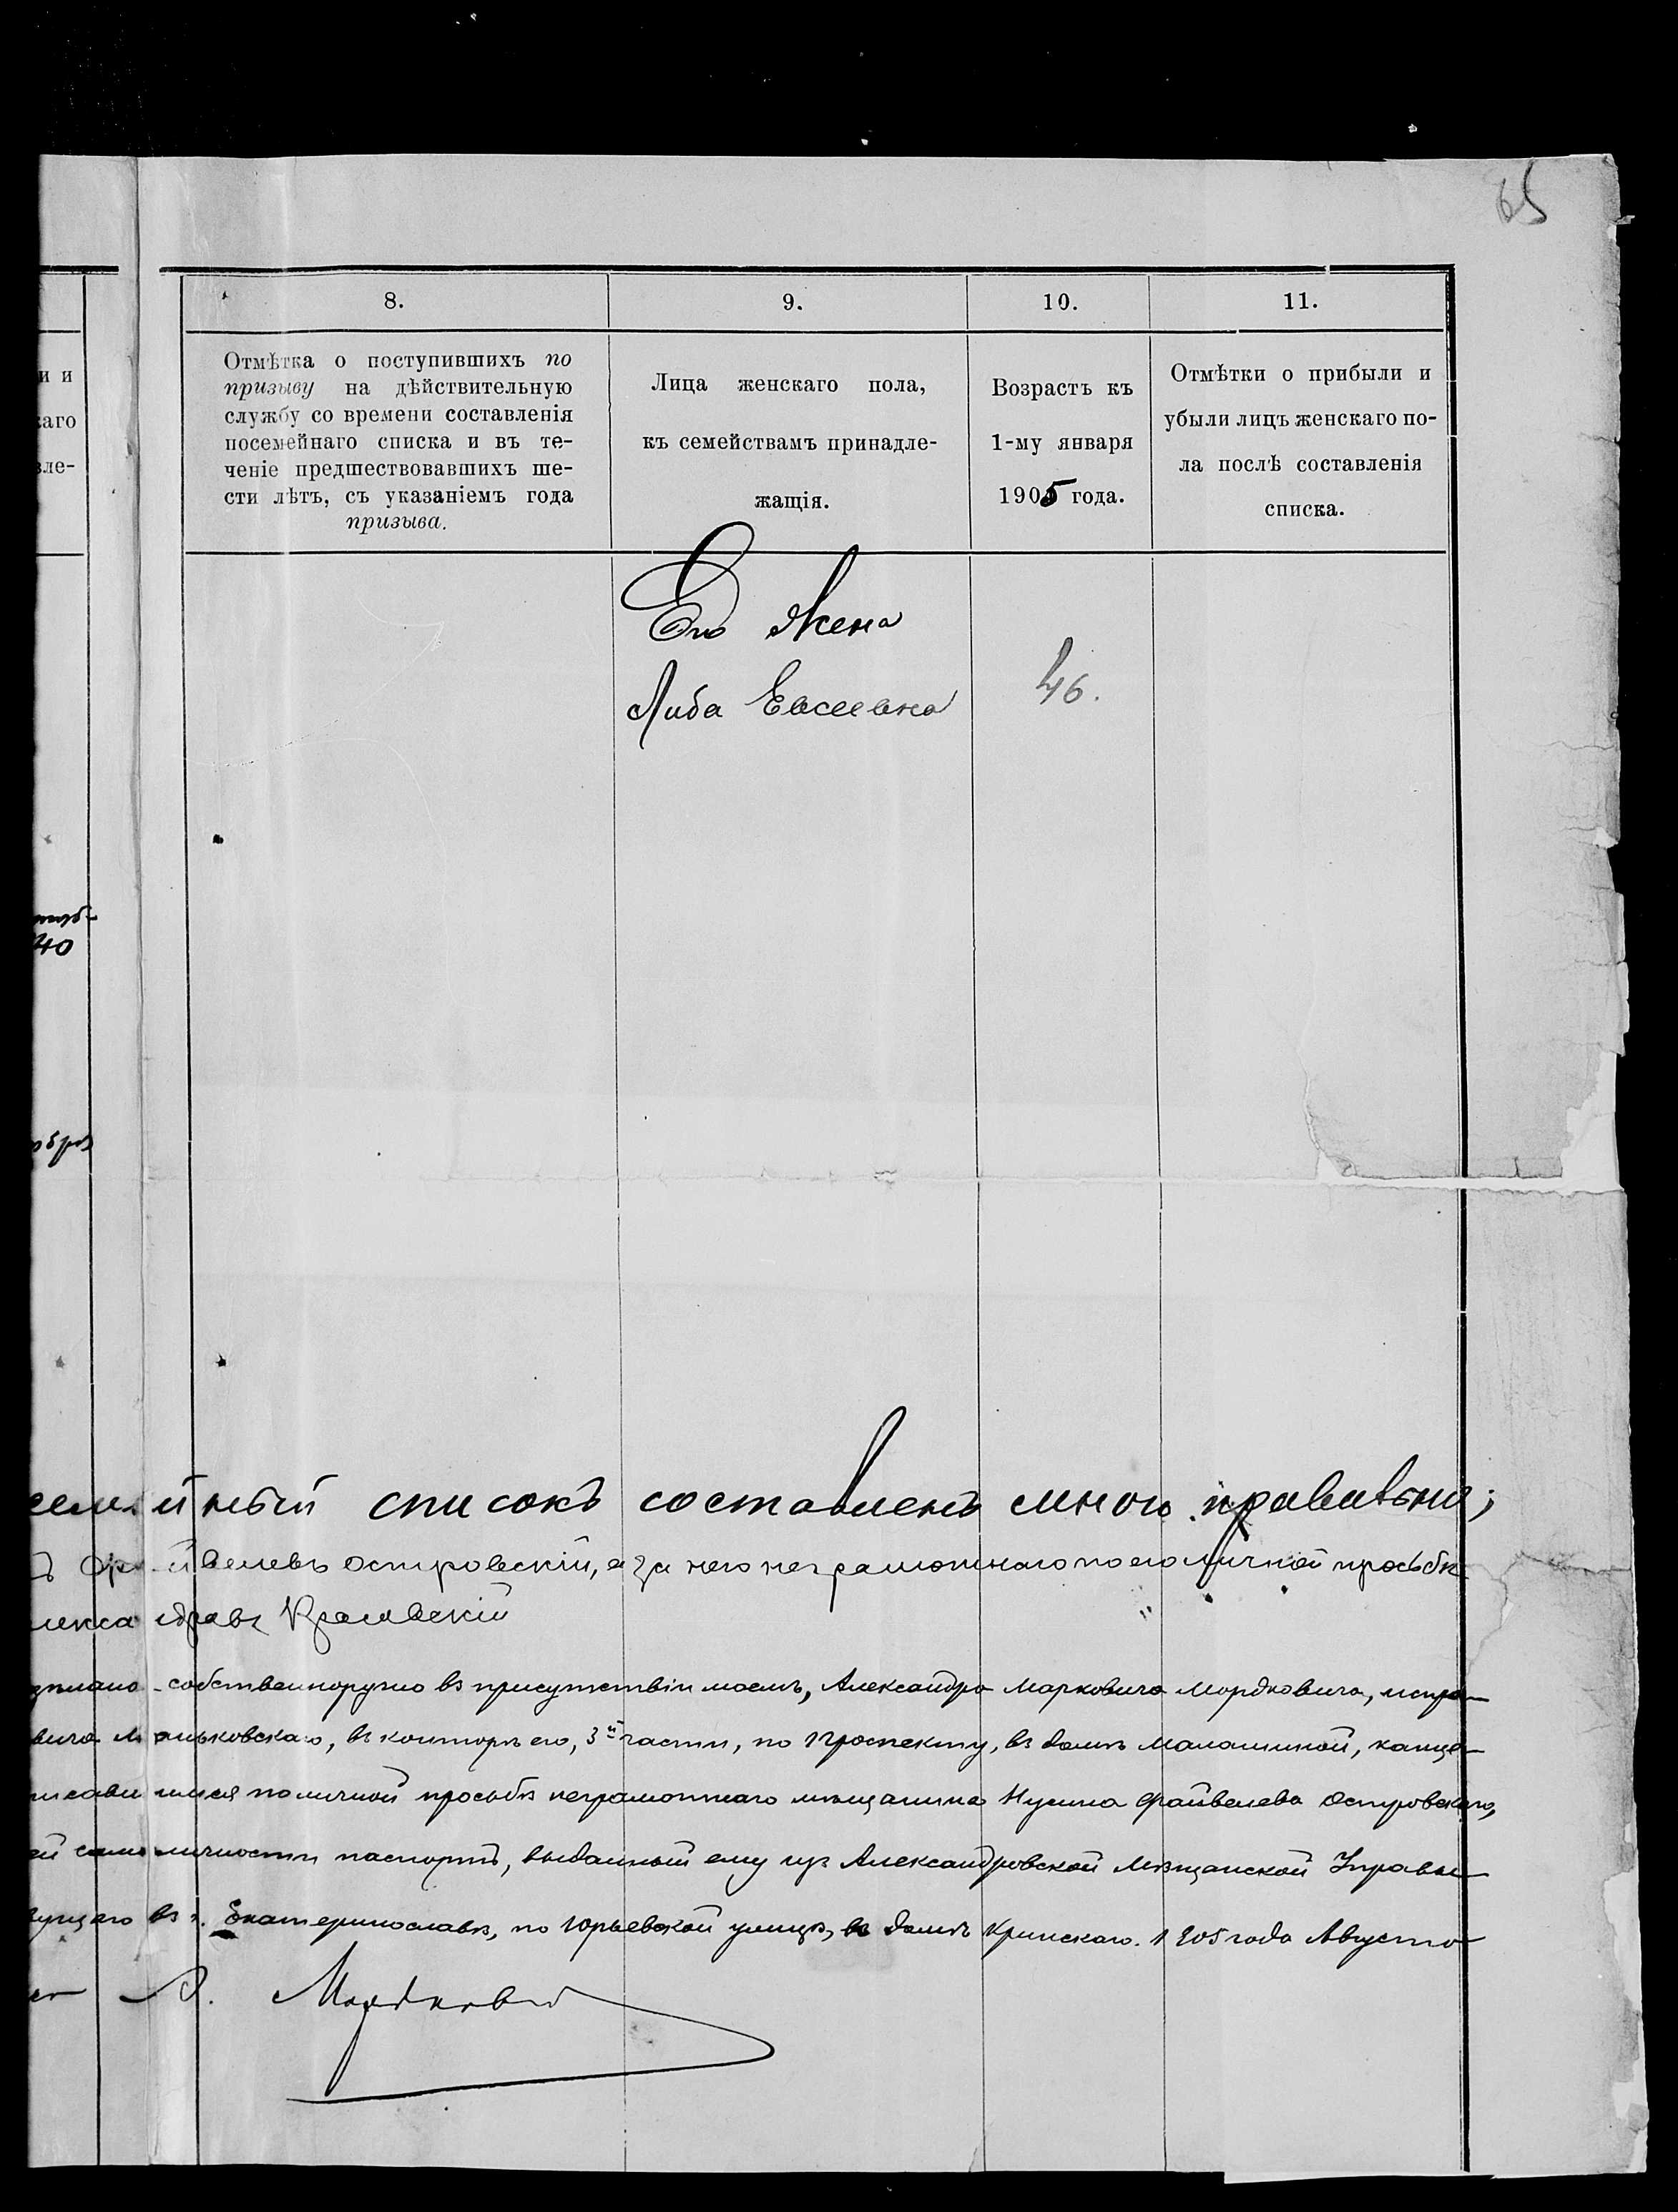 65
8.
9.
10.
11.
Отмѣтка о поступившихъ по
призыву на дѣйствительную
службу со времени составленія
посемейнаго списка и въ те-
ченіе предшествовавшихъ ше-
сти лѣтъ, съ указаніемъ года
призыва.
Лица женскаго пола,
къ семействамъ принадле-
жащія.
Возрастъ къ
1-му января
1905 года.
Отмѣтки о прибыли и
убыли лицъ женскаго по-
ла послѣ составленія
списка.
и и
каго
вле-
Его жена
Либа Евсеевна
46.
40
семейный списокъ составленъ мною правильно;
Файвелевъ Островскій, а за него неграмотнаго по его личной просьбѣ
Красовскій
собственноручно въ присутствіи моемъ, Александра Марковича Мордковича, испра-
вича въ конторѣ его, 3й части, по проспекту, въ домѣ Малашиной, канце-
по личной просьбѣ неграмотнаго мѣщанина Нусина Файвелева Островскаго,
ей самоличности паспортъ, выданный ему изъ Александровской Мѣщанской Управы
вущаго въ г. Екатеринославѣ, по Юрьевской улицѣ, въ домѣ Кринскаго. 1905 года Августа
А. Мордкович